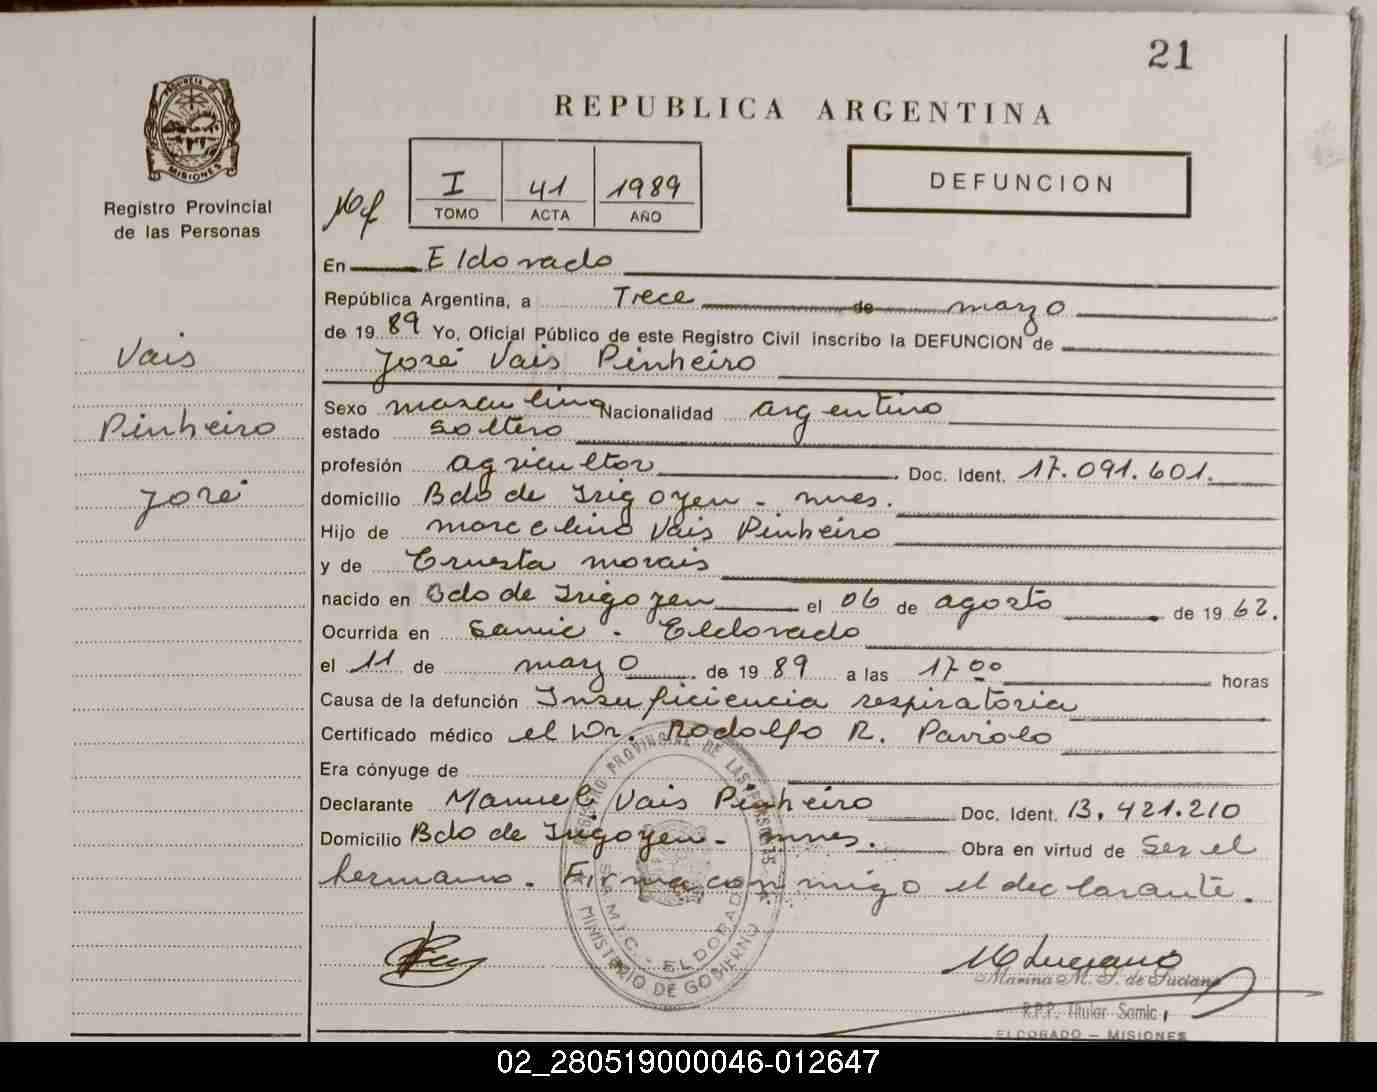 21
REPUBLICA ARGENTINA
PROVINCIA DE
MISIONES
Registro Provincial
de las Personas
I 41 1989
TOMO ACTA AÑO
DEFUNCION
En Eldorado
República Argentina, a Trece de marzo
de 1989 Yo, Oficial Público de este Registro Civil inscribo la DEFUNCION de
José Vais Pinheiro
Vais
Pinheiro
José
Sexo masculino Nacionalidad argentino
estado soltero
profesión agricultor Doc. Ident. 17.091.601.
domicilio Bdo de Irigoyen - mnes.
Hijo de marcelino Vais Pinheiro
y de Ernesta morais
nacido en Bdo de Irigoyen el 06 de agosto de 1962.
Ocurrida en Samic. Eldorado
el 11 de marzo de 1989 a las 17 00 horas
Causa de la defunción Insuficiencia respiratoria
Certificado médico el Dr. Rodolfo R.
Era cónyuge de
Declarante Manuel Vais Pinheiro Doc. Ident. 13.421.210
Domicilio Bdo de Irigoyen - mnes. Obra en virtud de Ser el
hermano. Firma conmigo el declarante.
REGISTRO PROVINCIAL DE LAS PERSONAS
S.A.M.I.C. - ELDORADO
MINISTERIO DE GOBIERNO
M Luciano
Marina M. de Luciano
R.P.P. Titular Samic
ELDORADO - MISIONES
02_280519000046-012647